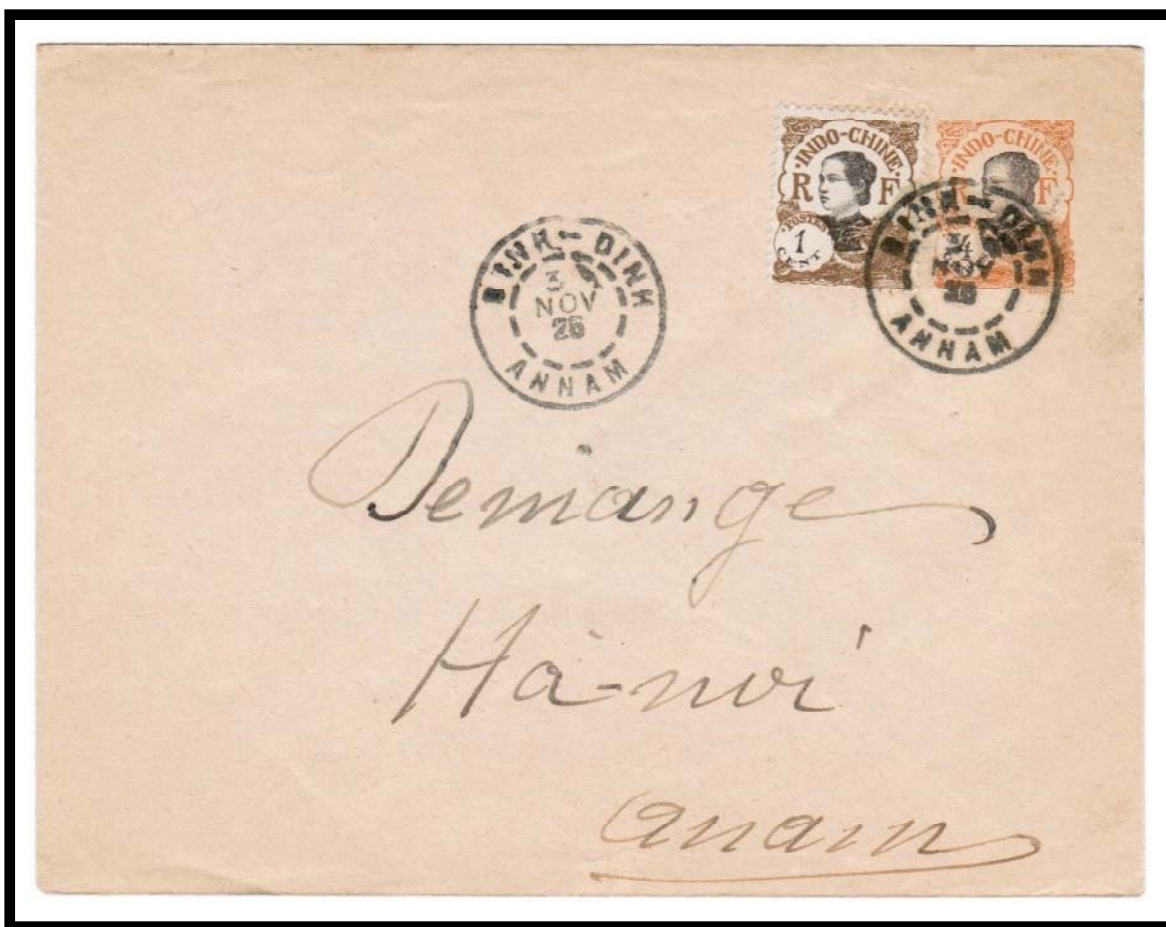 INDO-CHINE
R F
POSTES
1
CENT
INDO-CHINE
R F
BINH-DINH
3
NOV
26
ANNAM
BINH-DINH
NOV
26
ANNAM
Demange
Hà-nội
Anam